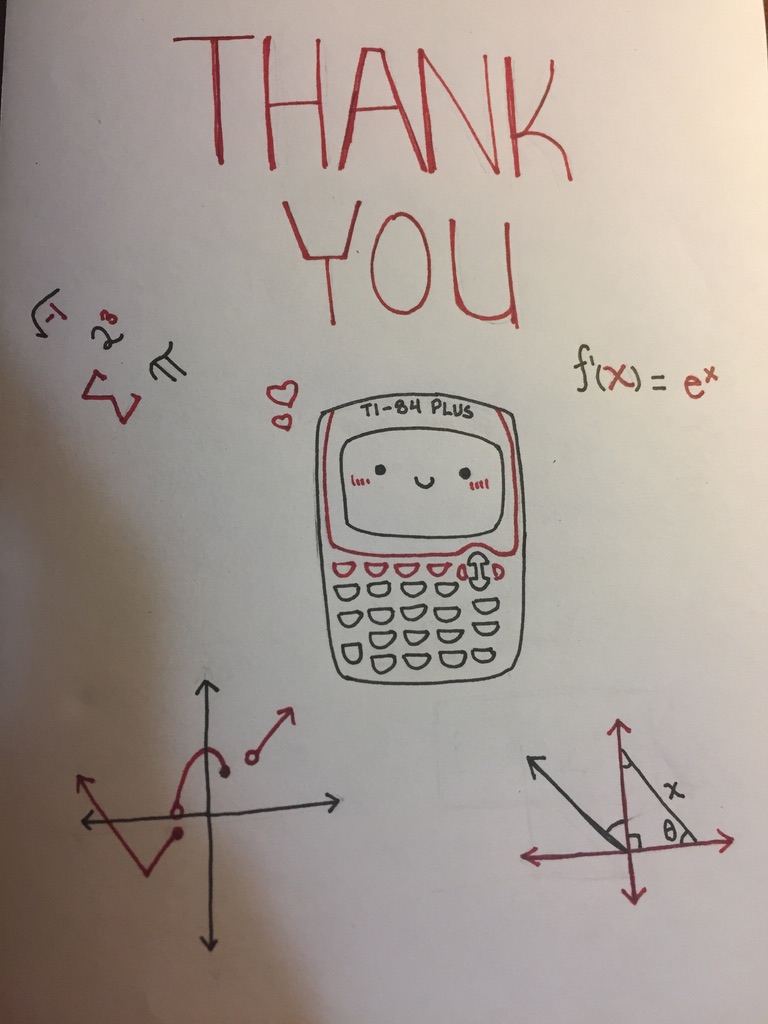 THANK
YOU
√-1 2³ Σ π
f'(x) = eˣ
TI-84 PLUS
x
θ